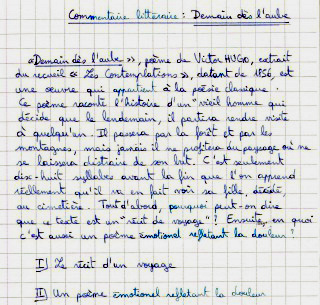 Commentaire littéraire : Demain dès l'aube
«Demain dès l'aube», poème de Victor HUGO, extrait
du recueil « Les Contemplations », datant de 1856, est
une œuvre qui appartient à la poésie classique.
Ce poème raconte l'histoire d'un "vieil homme qui
décide que le lendemain, il partira rendre visite
à quelqu'un. Il passera par la forêt et par les
montagnes, mais jamais il ne profitera du paysage où ne
se laissera distraire de son but. C'est seulement
dix-huit syllabes avant la fin que l'on apprend
réellement qu'il va en fait voir sa fille, décédée,
au cimetière. Tout d'abord, pourquoi peut-on dire
que ce texte est un "récit de voyage" ? Ensuite, en quoi
c'est aussi un poème émotionel reflétant la douleur ?
I) Le récit d'un voyage
II) Un poème émotionel reflétant la douleur